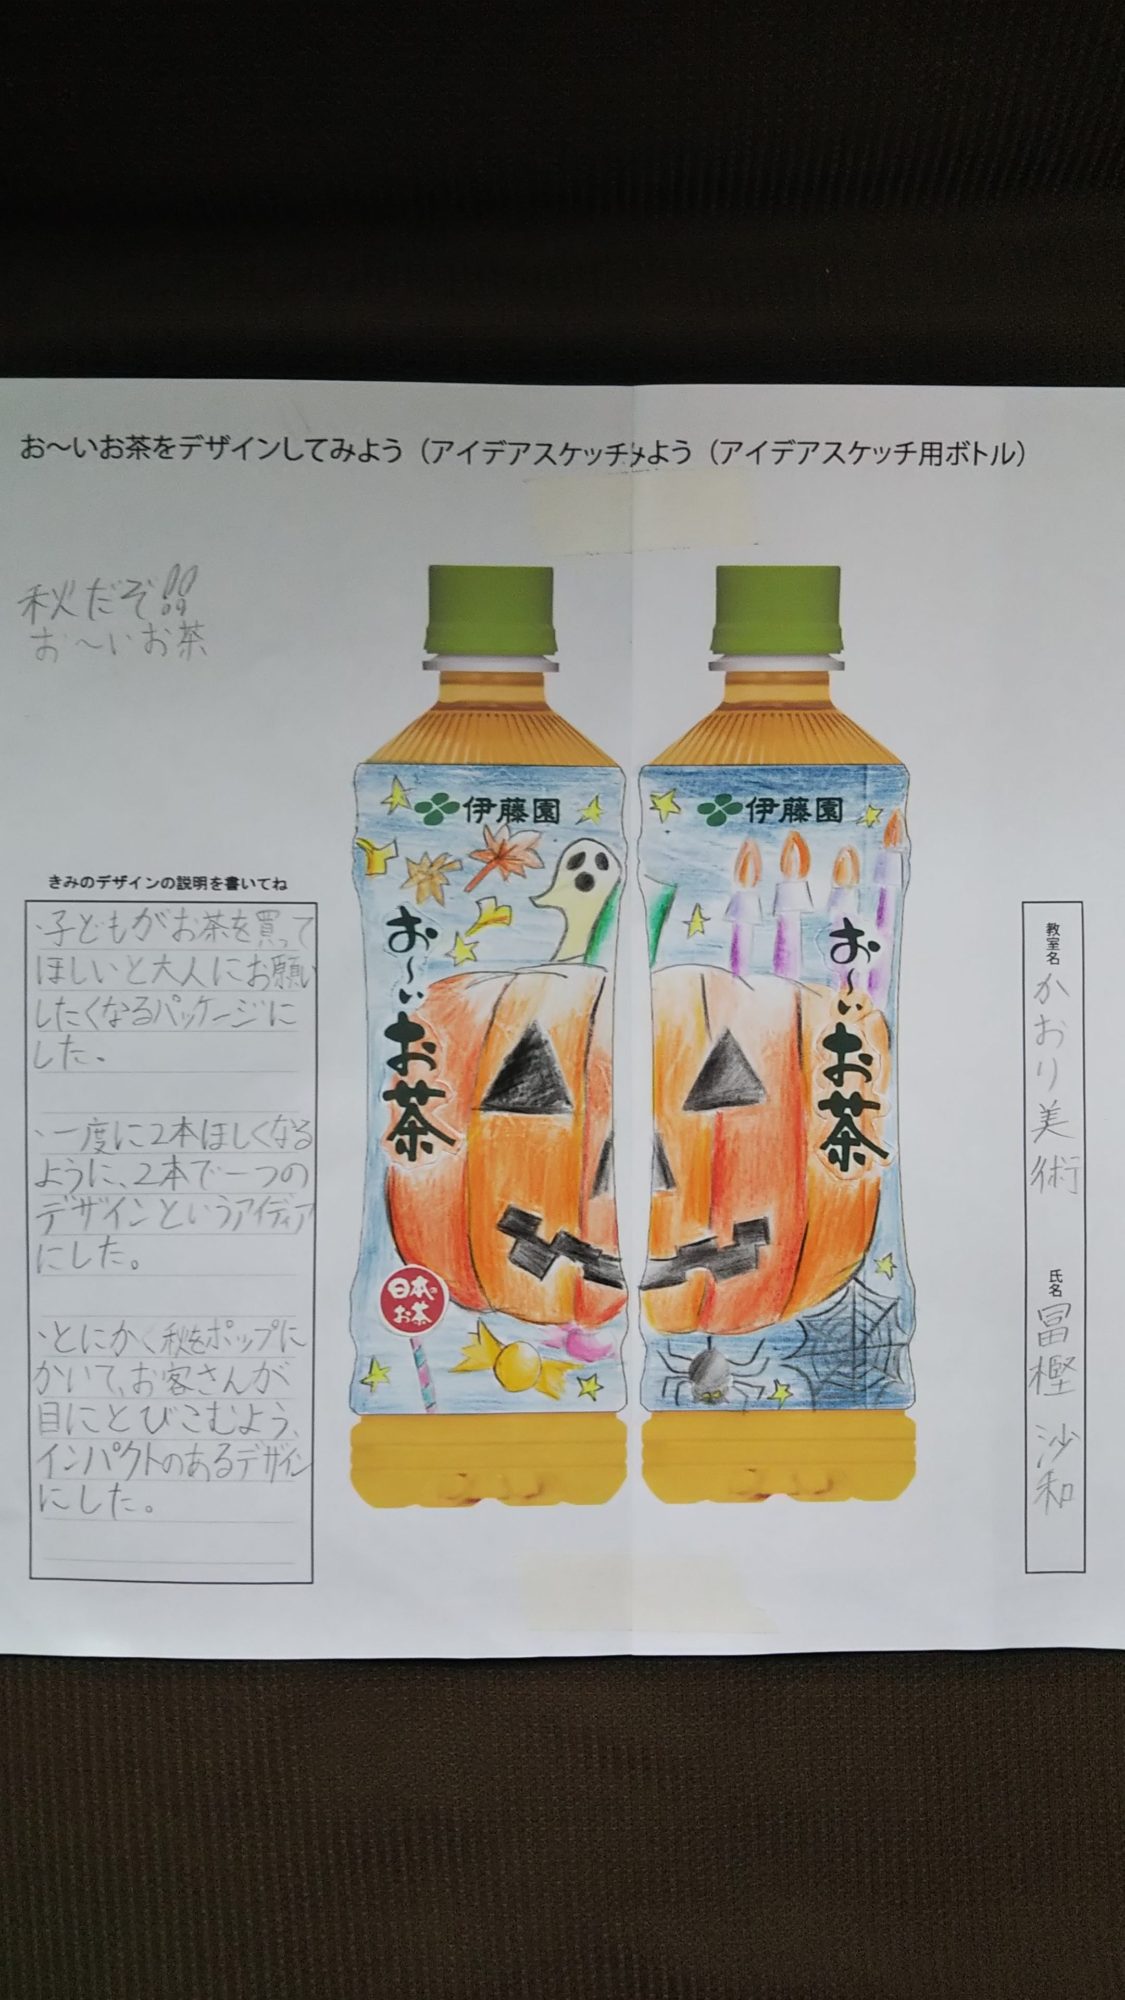 お〜いお茶をデザインしてみよう（アイデアスケッチみよう（アイデアスケッチ用ボトル）
秋だぞ!!
お〜いお茶
きみのデザインの説明を書いてね
・子どもがお茶を買って
ほしいと大人にお願い
したくなるパッケージに
した。
・一度に2本ほしくなる
ように、2本で一つの
デザインというアイディア
にした。
・とにかく秋をポップに
かいて、お客さんが
目にとびこむよう、
インパクトのあるデザイン
にした。
伊藤園
お〜いお茶
日本の
お茶
伊藤園
お〜いお茶
教室名
かおり美術
氏名
冨樫 沙和